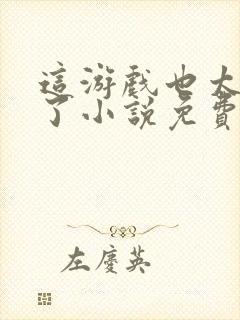 這游戲也太
了小說免費
左慶英